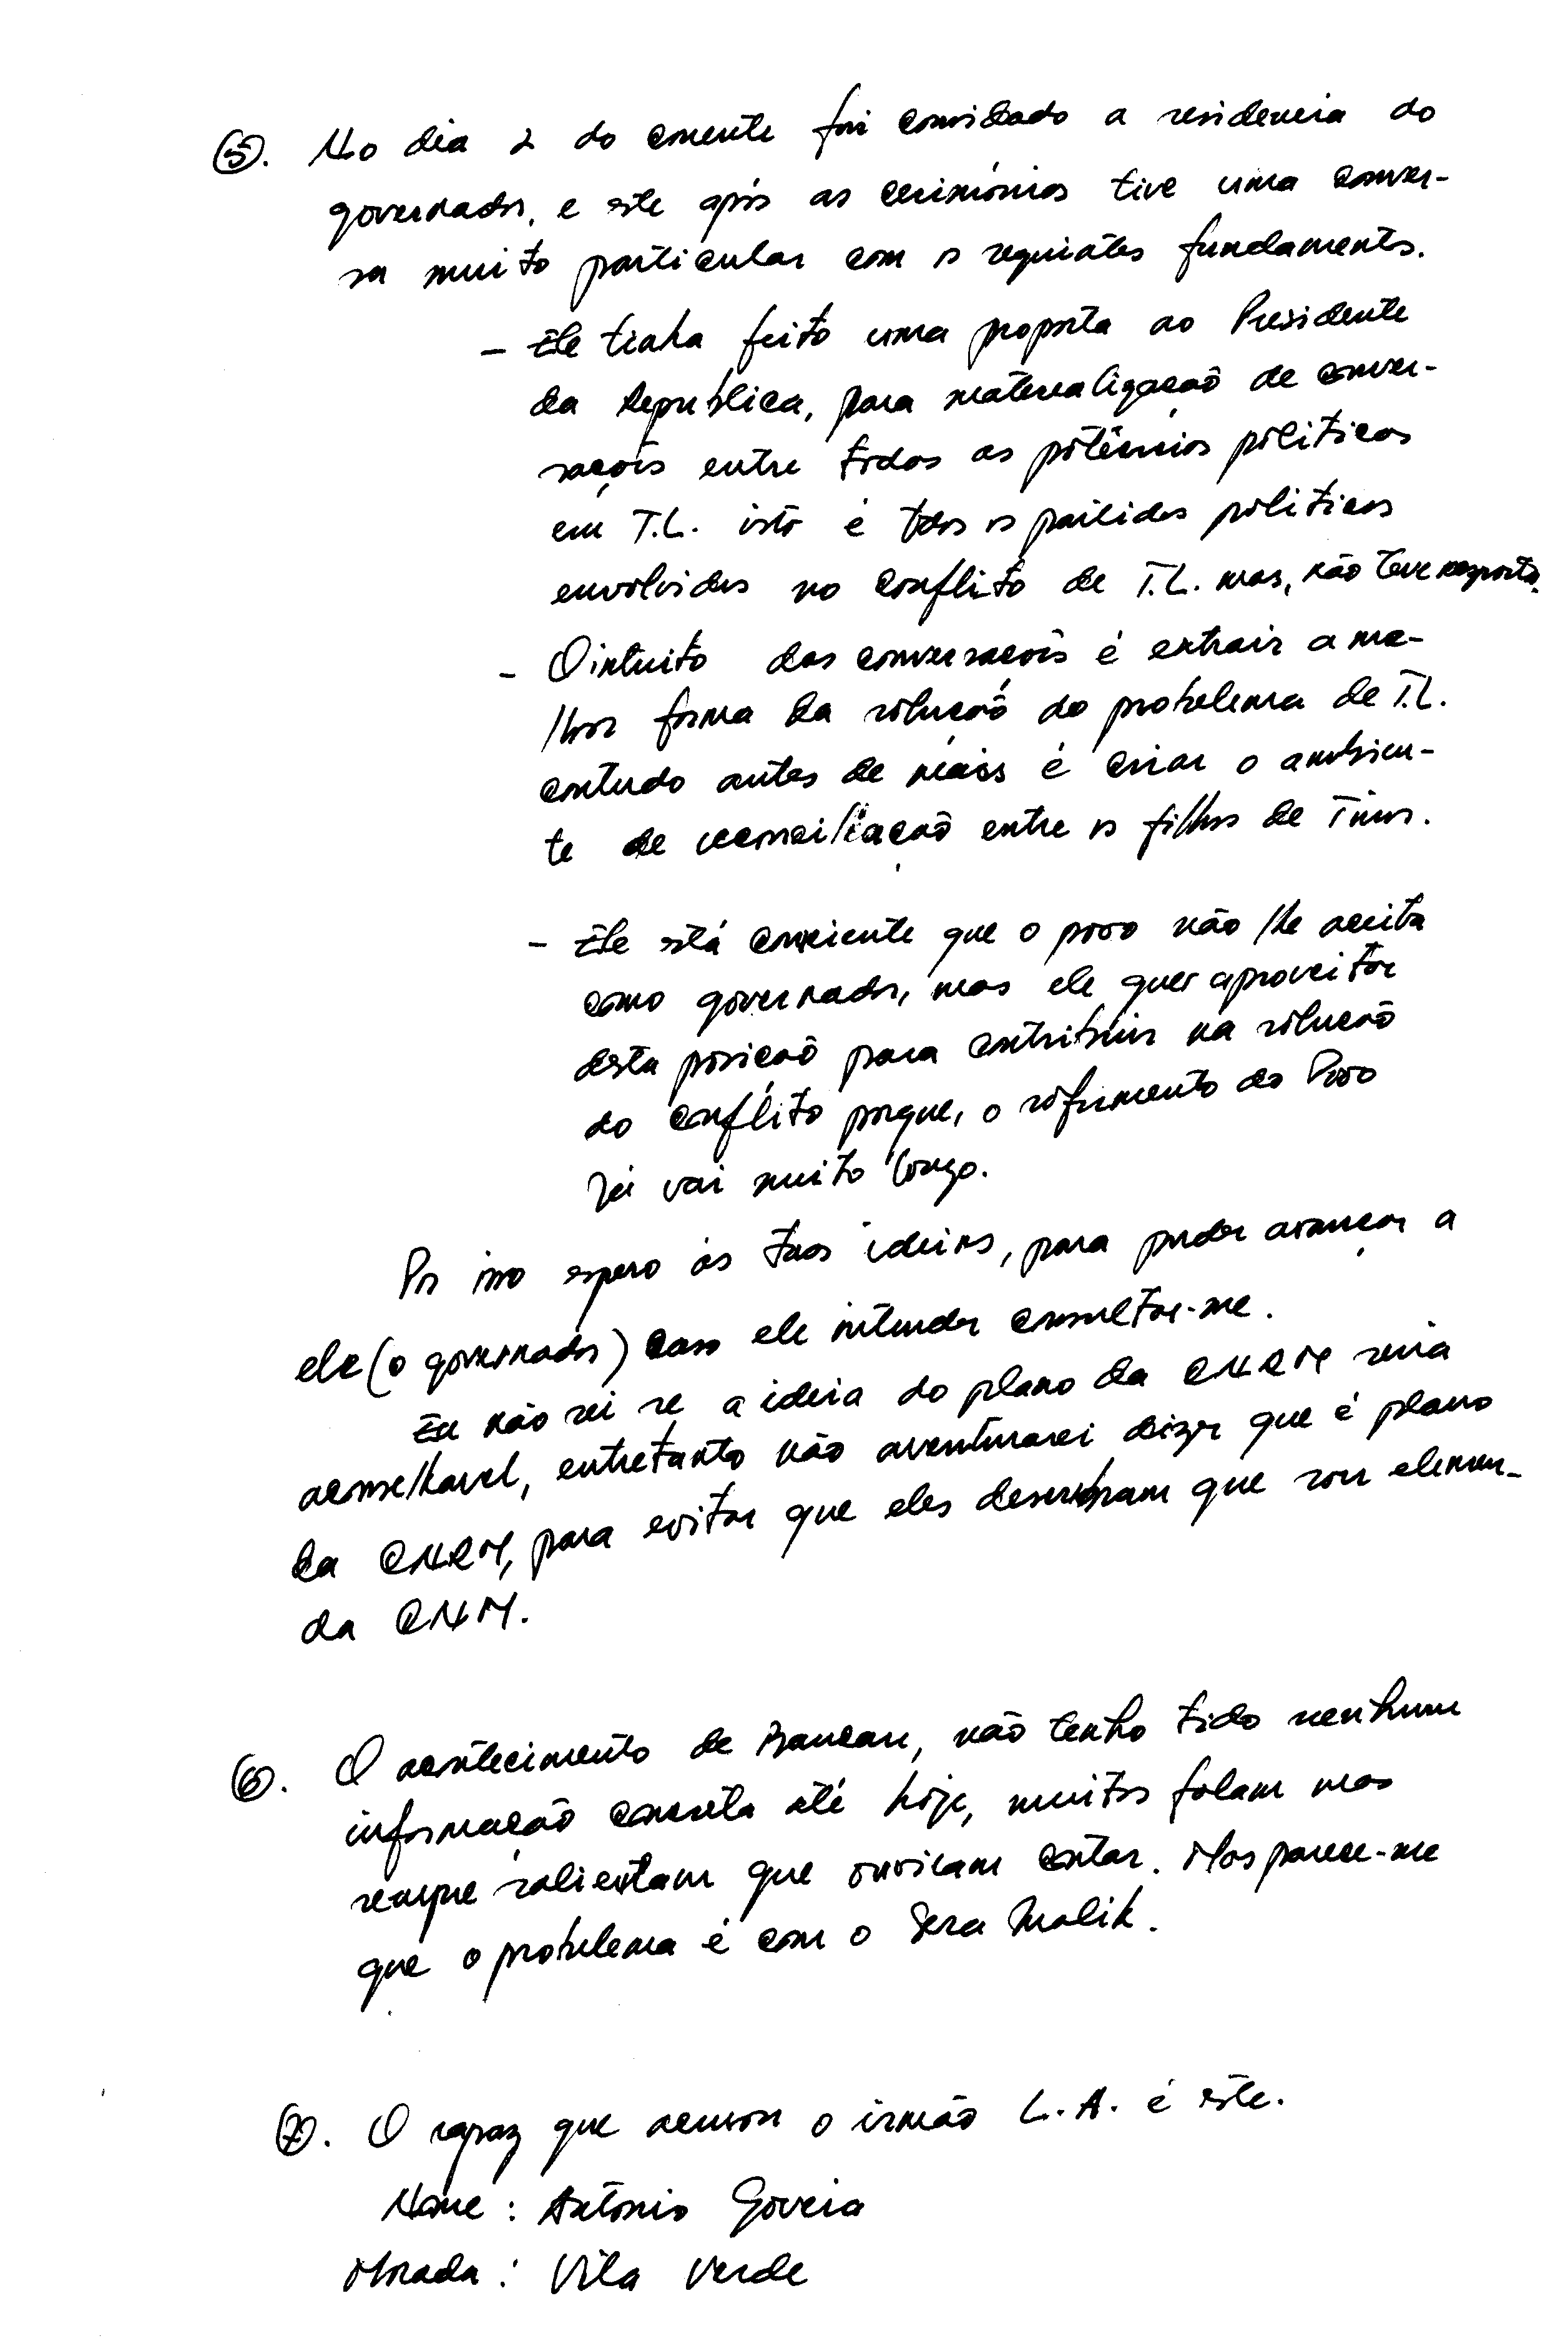 (5). No dia 2 do corrente fui convidado a residencia do
governador, e este após as cerimónias tive uma conver-
sa muito particular com os seguintes fundamentos.
- Ele tinha feito uma proposta ao Presidente
da República, para materealização de conver-
saçois entre todas as potências politicas
em T.L. isto é todos os partidos politicos
envolvidos no conflito de T.L. mas, não teve resposta.
- O intuito das conversaçois é extrair a me-
lhor forma da solução do problema de T.L.
contudo antes de mais é criar o ambien-
te de reconciliação entre os filhos de Timor.
- Ele está consciente que o povo não lhe aceita
como governador, mas ele quer aproveitar
desta posição para contribuir na solução
do conflito porque, o sofrimento do Povo
já vai muito longo.
Por isso espero as tuas ideias, para puder avançar a
ele (o governador) caso ele intender consultar-me.
Eu não sei se a ideia do plano da CNRM seria
aconselhavel, entretanto não aventurarei dizer que é plano
da CNRM, para evitar que eles descubram que sou elemen-
da CNRM.
(6). O acontecimento de Baucau, não tenho tido nenhum
informação concreta até hoje, muitos falam mas
sempre salientam que ouviram contar. Mas parece-me
que o problema é com o Sera Malik.
(7). O rapaz que acusou o irmão L.A. é este.
Nome : António Goveia
Morada : Vila Verde